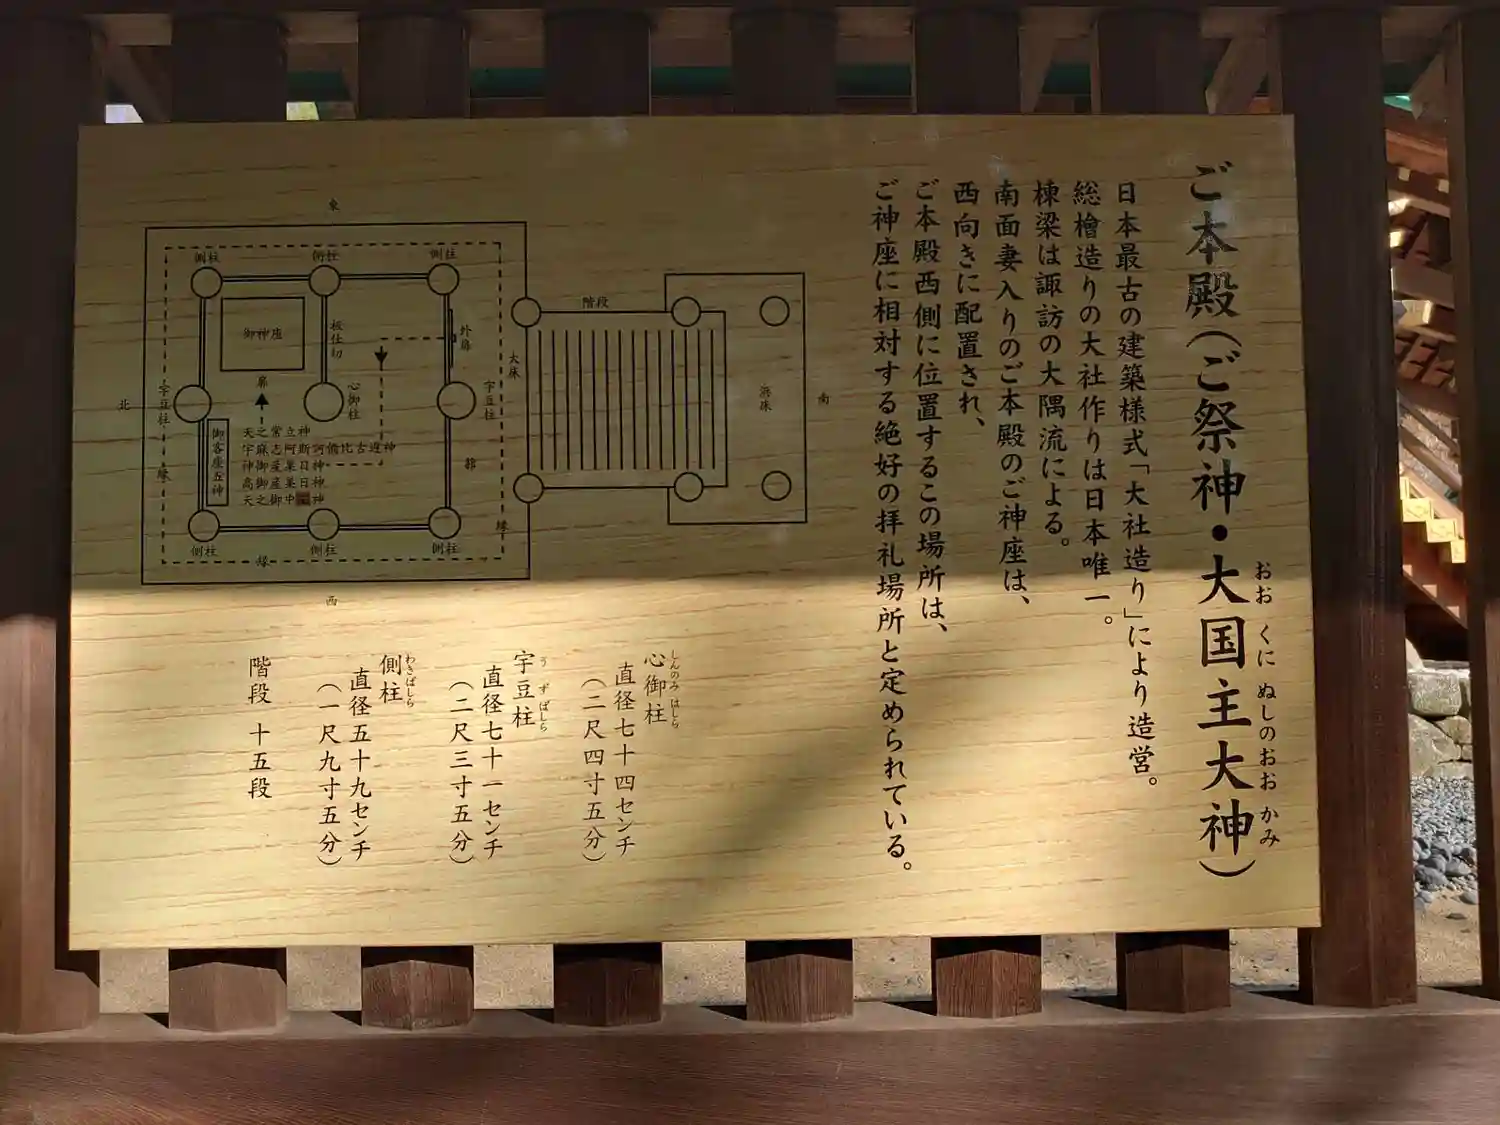 ご本殿(ご祭神・大国主大神)
おお くに ぬしの おお かみ
日本最古の建築様式「大社造り」により造営。
総檜造りの大社作りは日本唯一。
棟梁は諏訪の大隅流による。
南面妻入りのご本殿のご神座は、
西向きに配置され、
ご本殿西側に位置するこの場所は、
ご神座に相対する絶好の拝礼場所と定められている。
しんのみ はしら
心御柱
直径七十四センチ
(二尺四寸五分)
う ずばしら
宇豆柱
直径七十一センチ
(二尺三寸五分)
わきばしら
側柱
直径五十九センチ
(一尺九寸五分)
階段 十五段
東
側柱
側柱
側柱
御神座
板仕切
外扉
扉
心御柱
宇豆柱
宇豆柱
北
大床
階段
浜床
南
御客座五神
天之常立神
宇麻志阿斯訶備比古遅神
神御産巣日神
高御産巣日神
天之御中主神
蔀
縁
縁
縁
側柱
側柱
側柱
西